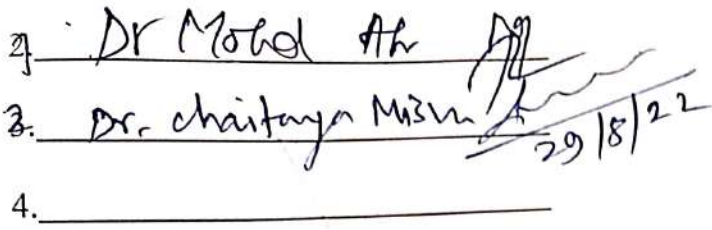 2] Dr Mohd
3. Dr. Chaitanya Mishra
29/8/22
4.